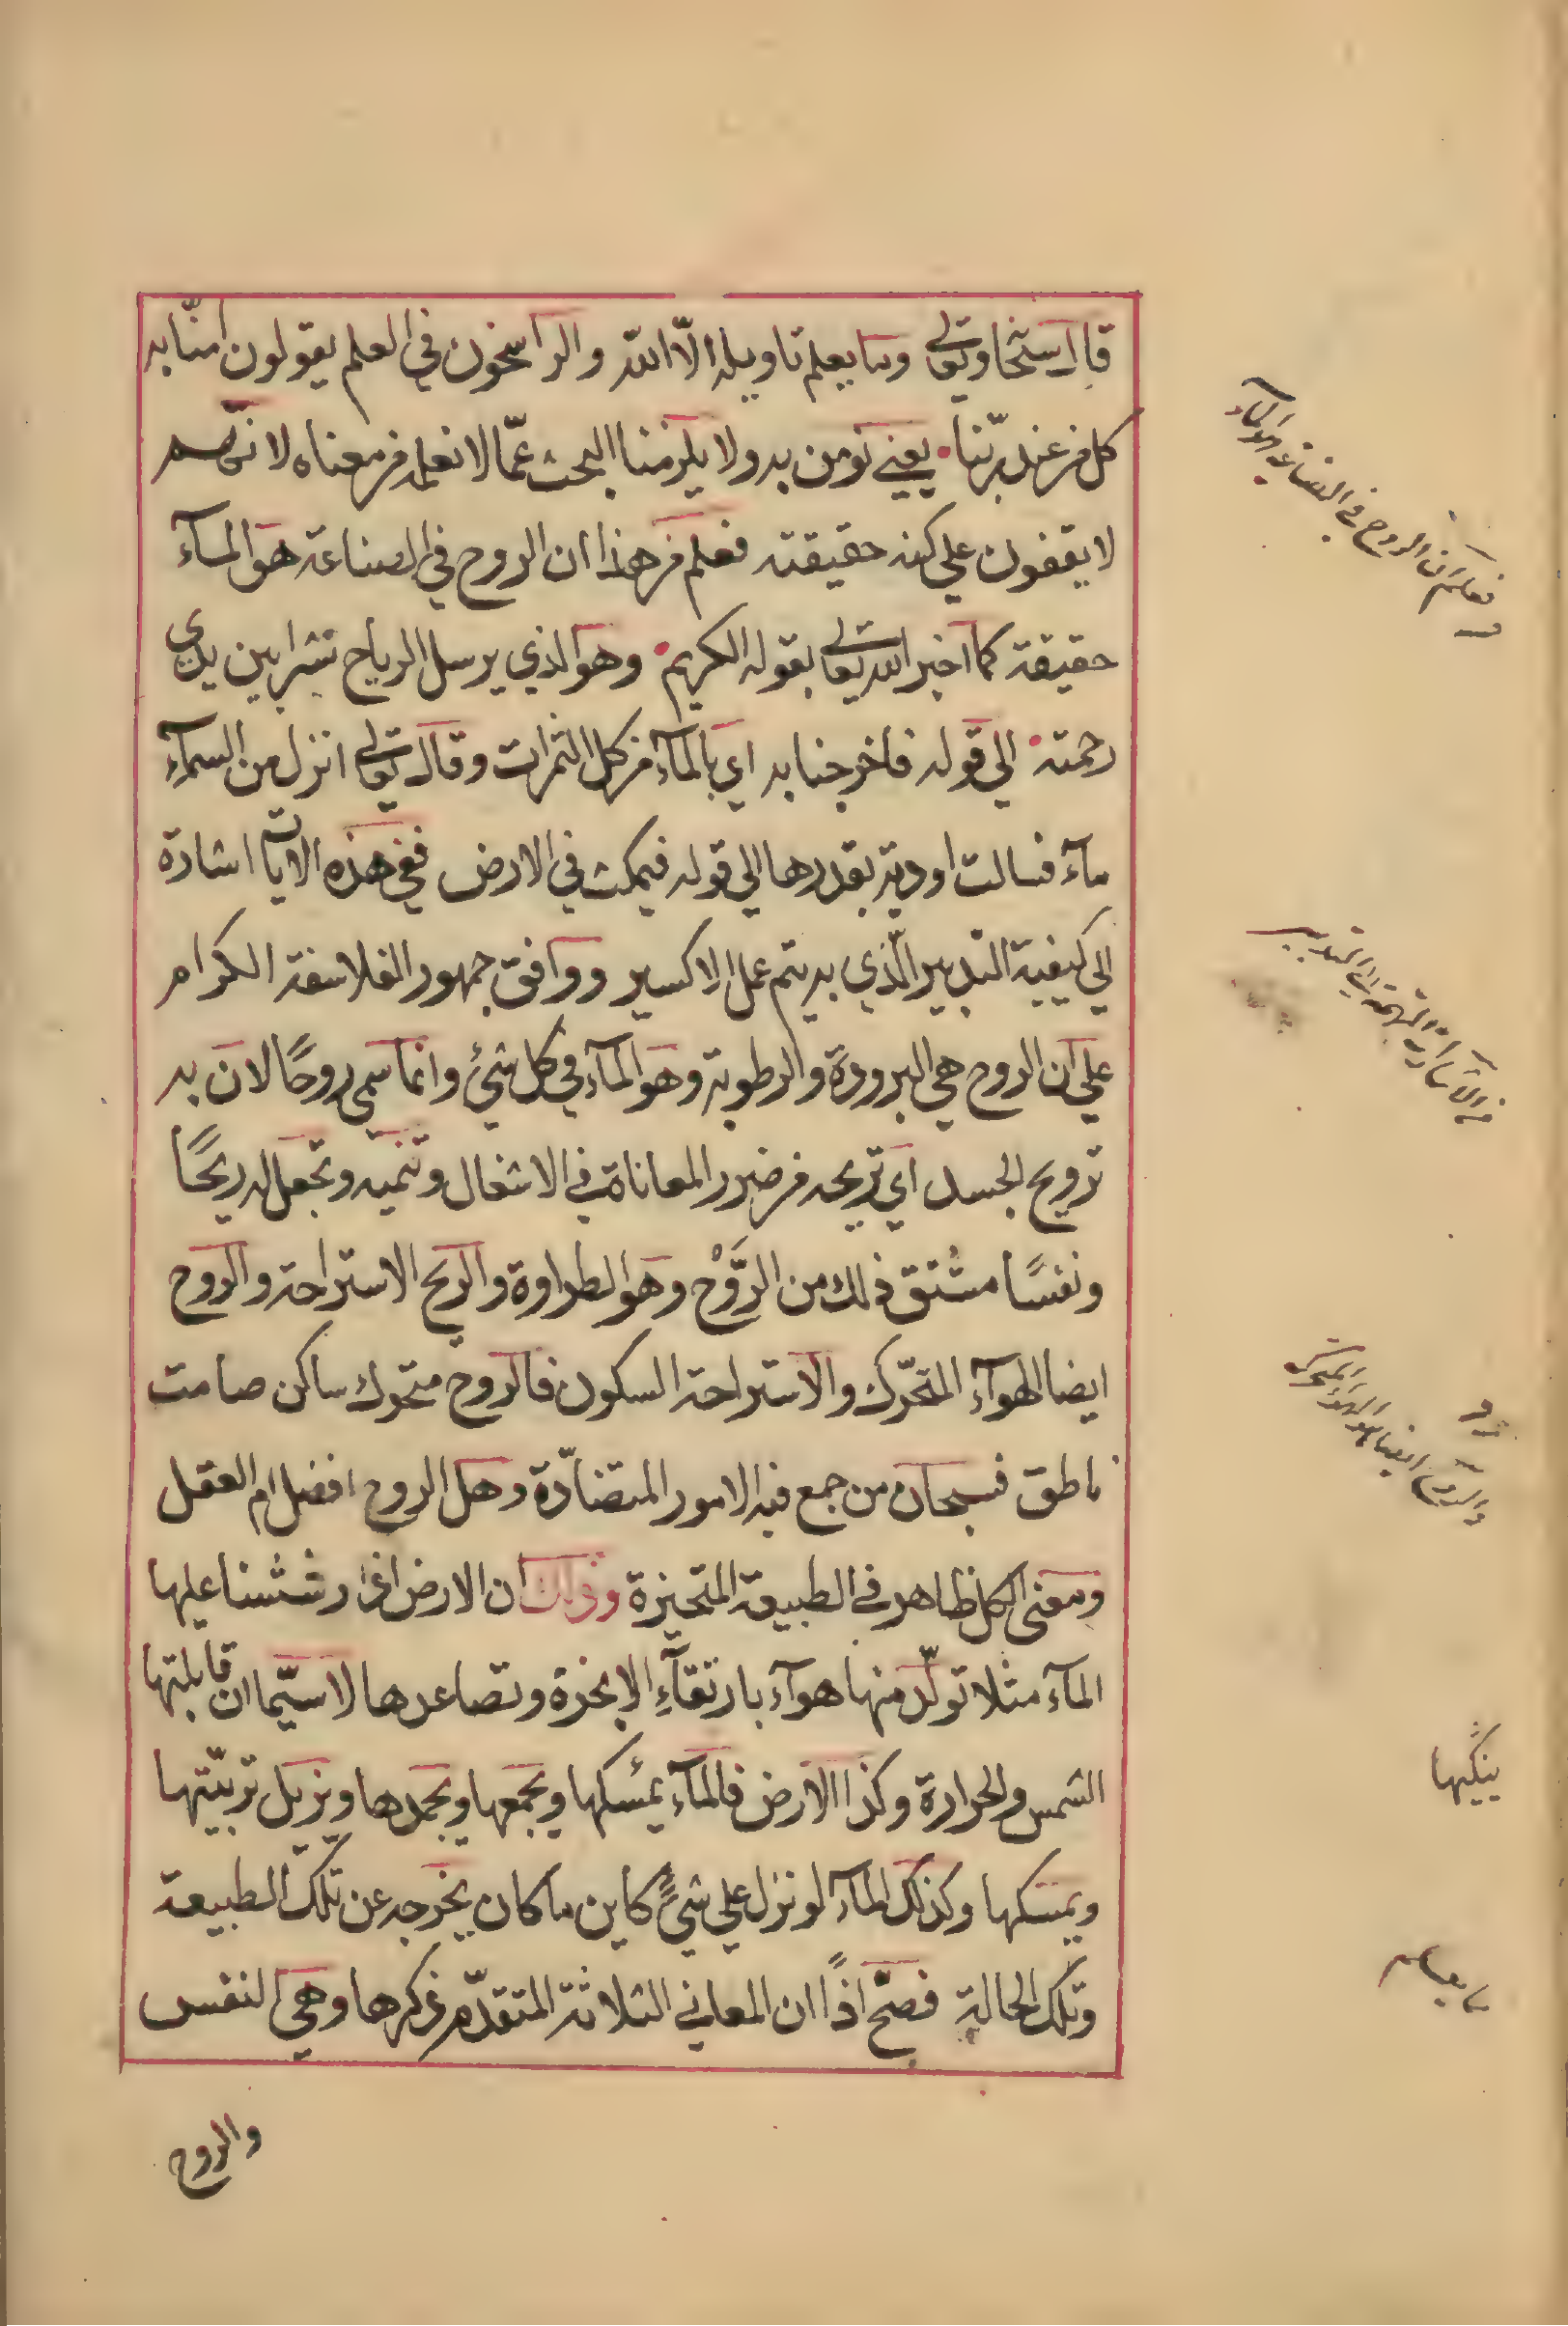 قال سبحانه وتعالى وما يعلم تاويله الّا الله والراسخون في العلم يقولون امنّا به
كل من عند ربّنا يعني نؤمن به ولا يلزمنا البحث عمّا لا نعلمه من معناه لانّهم
لا يقفون علي كنه حقيقته فعلم من هذا ان الروح في الصناعة هو المآء
حقيقة كما اخبر الله تعالى بقوله الكريم وهو الذي يرسل الرياح نشرا بين يدي
رحمته الي قوله فاخرجنا به اي بالمآء من كل الثمرات وقال تعالى انزل من السمآء
مآء فسالت اودية بقدرها الي قوله فيمكث في الارض ففي هذه الايات اشارة
الي كيفية التدبير الّذي به يتم عمل الاكسير ووافق جمهور الفلاسفة الكرام
علي ان الروح هي البرودة والرطوبة وهو المآء في كل شيء وانما سمي روحًا لان به
ترويح الجسد اي تريحه من ضرر المعاناة في الاشغال وتنميه وتجعل له ريحًا
ونفسًا مشتق ذلك من الرَّوْح وهو الطراوة والريح الاستراحة والروح
ايضا الهوآء المتحّرك والاستراحة السكون فالروح متحرك ساكن صامت
ناطق فسبحان من جمع فيه الامور المتضادّة وهل الروح افضل ام العقل
ومعني الكل ظاهر في الطبيعة المتحيزة وذلك ان الارض اذا رششنا عليها
المآء مثلا تولّد منها هوآء بارتقآءِ الابخرة وتصاعدها لاسيّما ان قابلتها
الشمس والحرارة وكذا الارض فالمآء يمسكها ويجمعها ويجمدها ويزيل تربيّتها
ويمسكها وكذلك المآء لو نزل علي شيءٍ كاين ما كان يخرجه عن تلك الطبيعة
وتلك الحالة فصحّ اذًا ان المعاني الثلاثة المتقدّم ذكرها وهي النفس
والروح
فعلم ان الروح في الصناعة هو المآء
في الاشارة الي التدبير
والروح ايضا هو الهوآء المتحرك